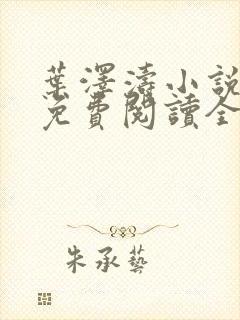 葉澤濤小說
免費閱讀全
朱承藝